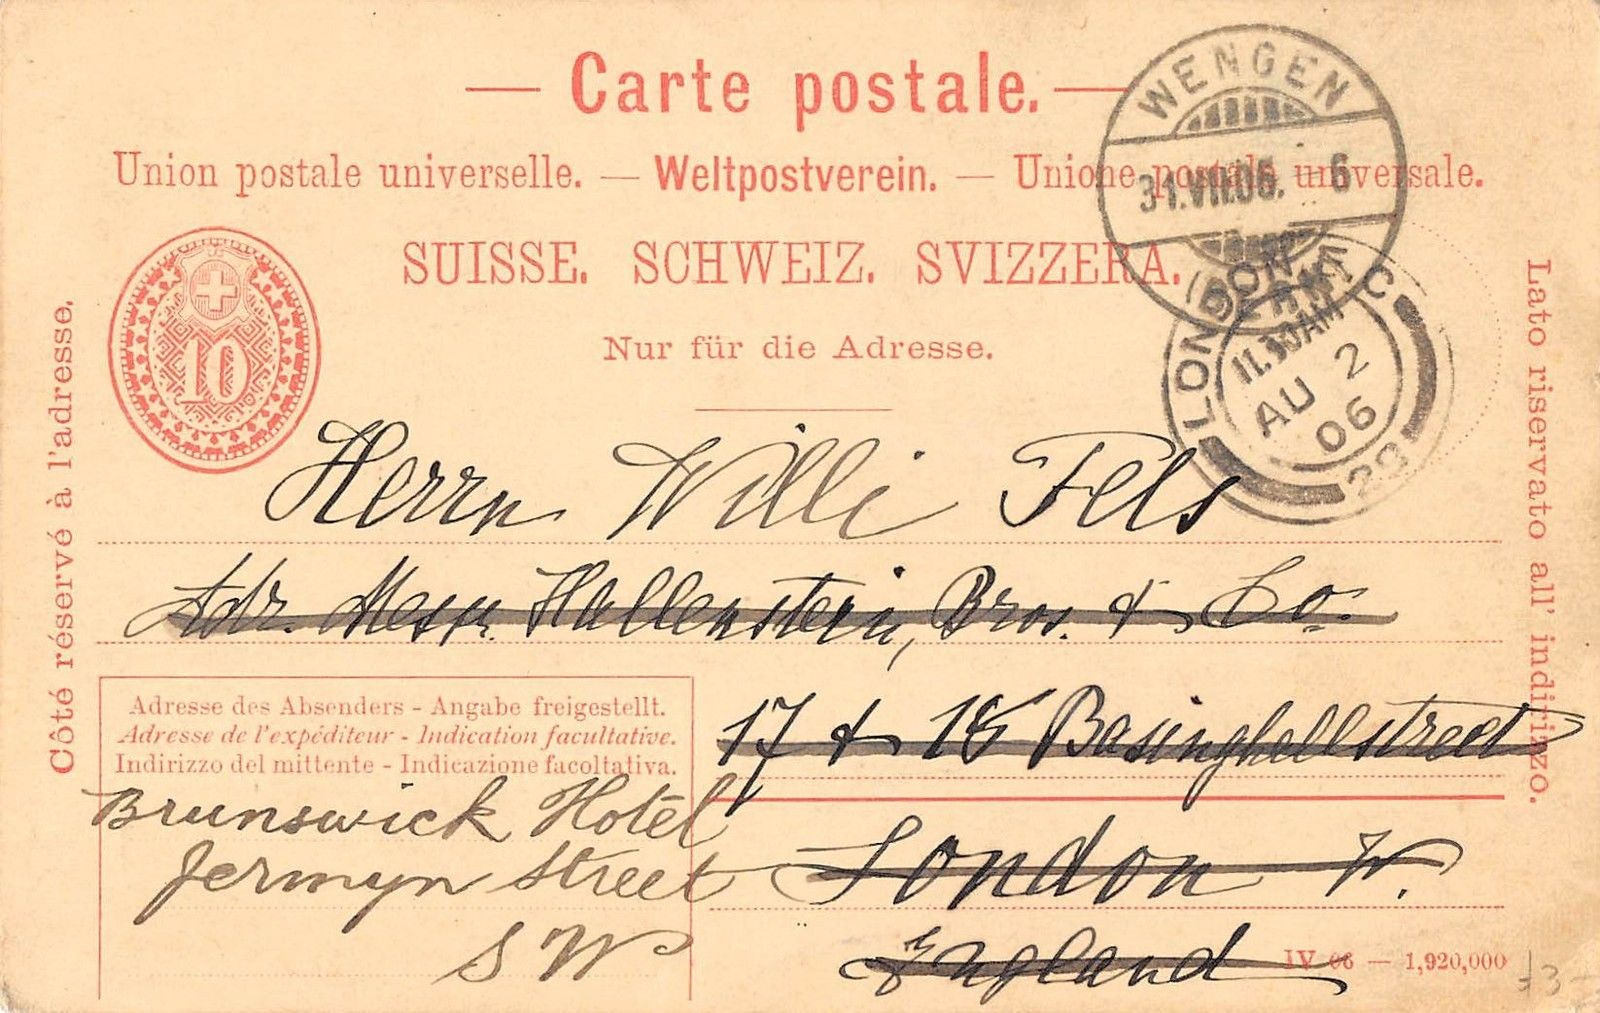 — Carte postale. —
Union postale universelle. — Weltpostverein. — Unione postale universale.
SUISSE. SCHWEIZ. SVIZZERA.
Nur für die Adresse.
10
WENGEN
31.VII.06. - 6
(BERN)
LONDON E C
11.30 AM
AU 2
06
29
Côté réservé à l'adresse.
Lato riservato all' indirizzo.
Herrn Willi Fels
Adr. Messr. Hallenstein, Bros. & Co.
17 & 18 Basinghellstreet
London W.
England
Adresse des Absenders - Angabe freigestellt.
Adresse de l'expéditeur - Indication facultative.
Indirizzo del mittente - Indicazione facoltativa.
Brunswick Hotel
Jermyn Street
S W
IV 06 — 1,920,000